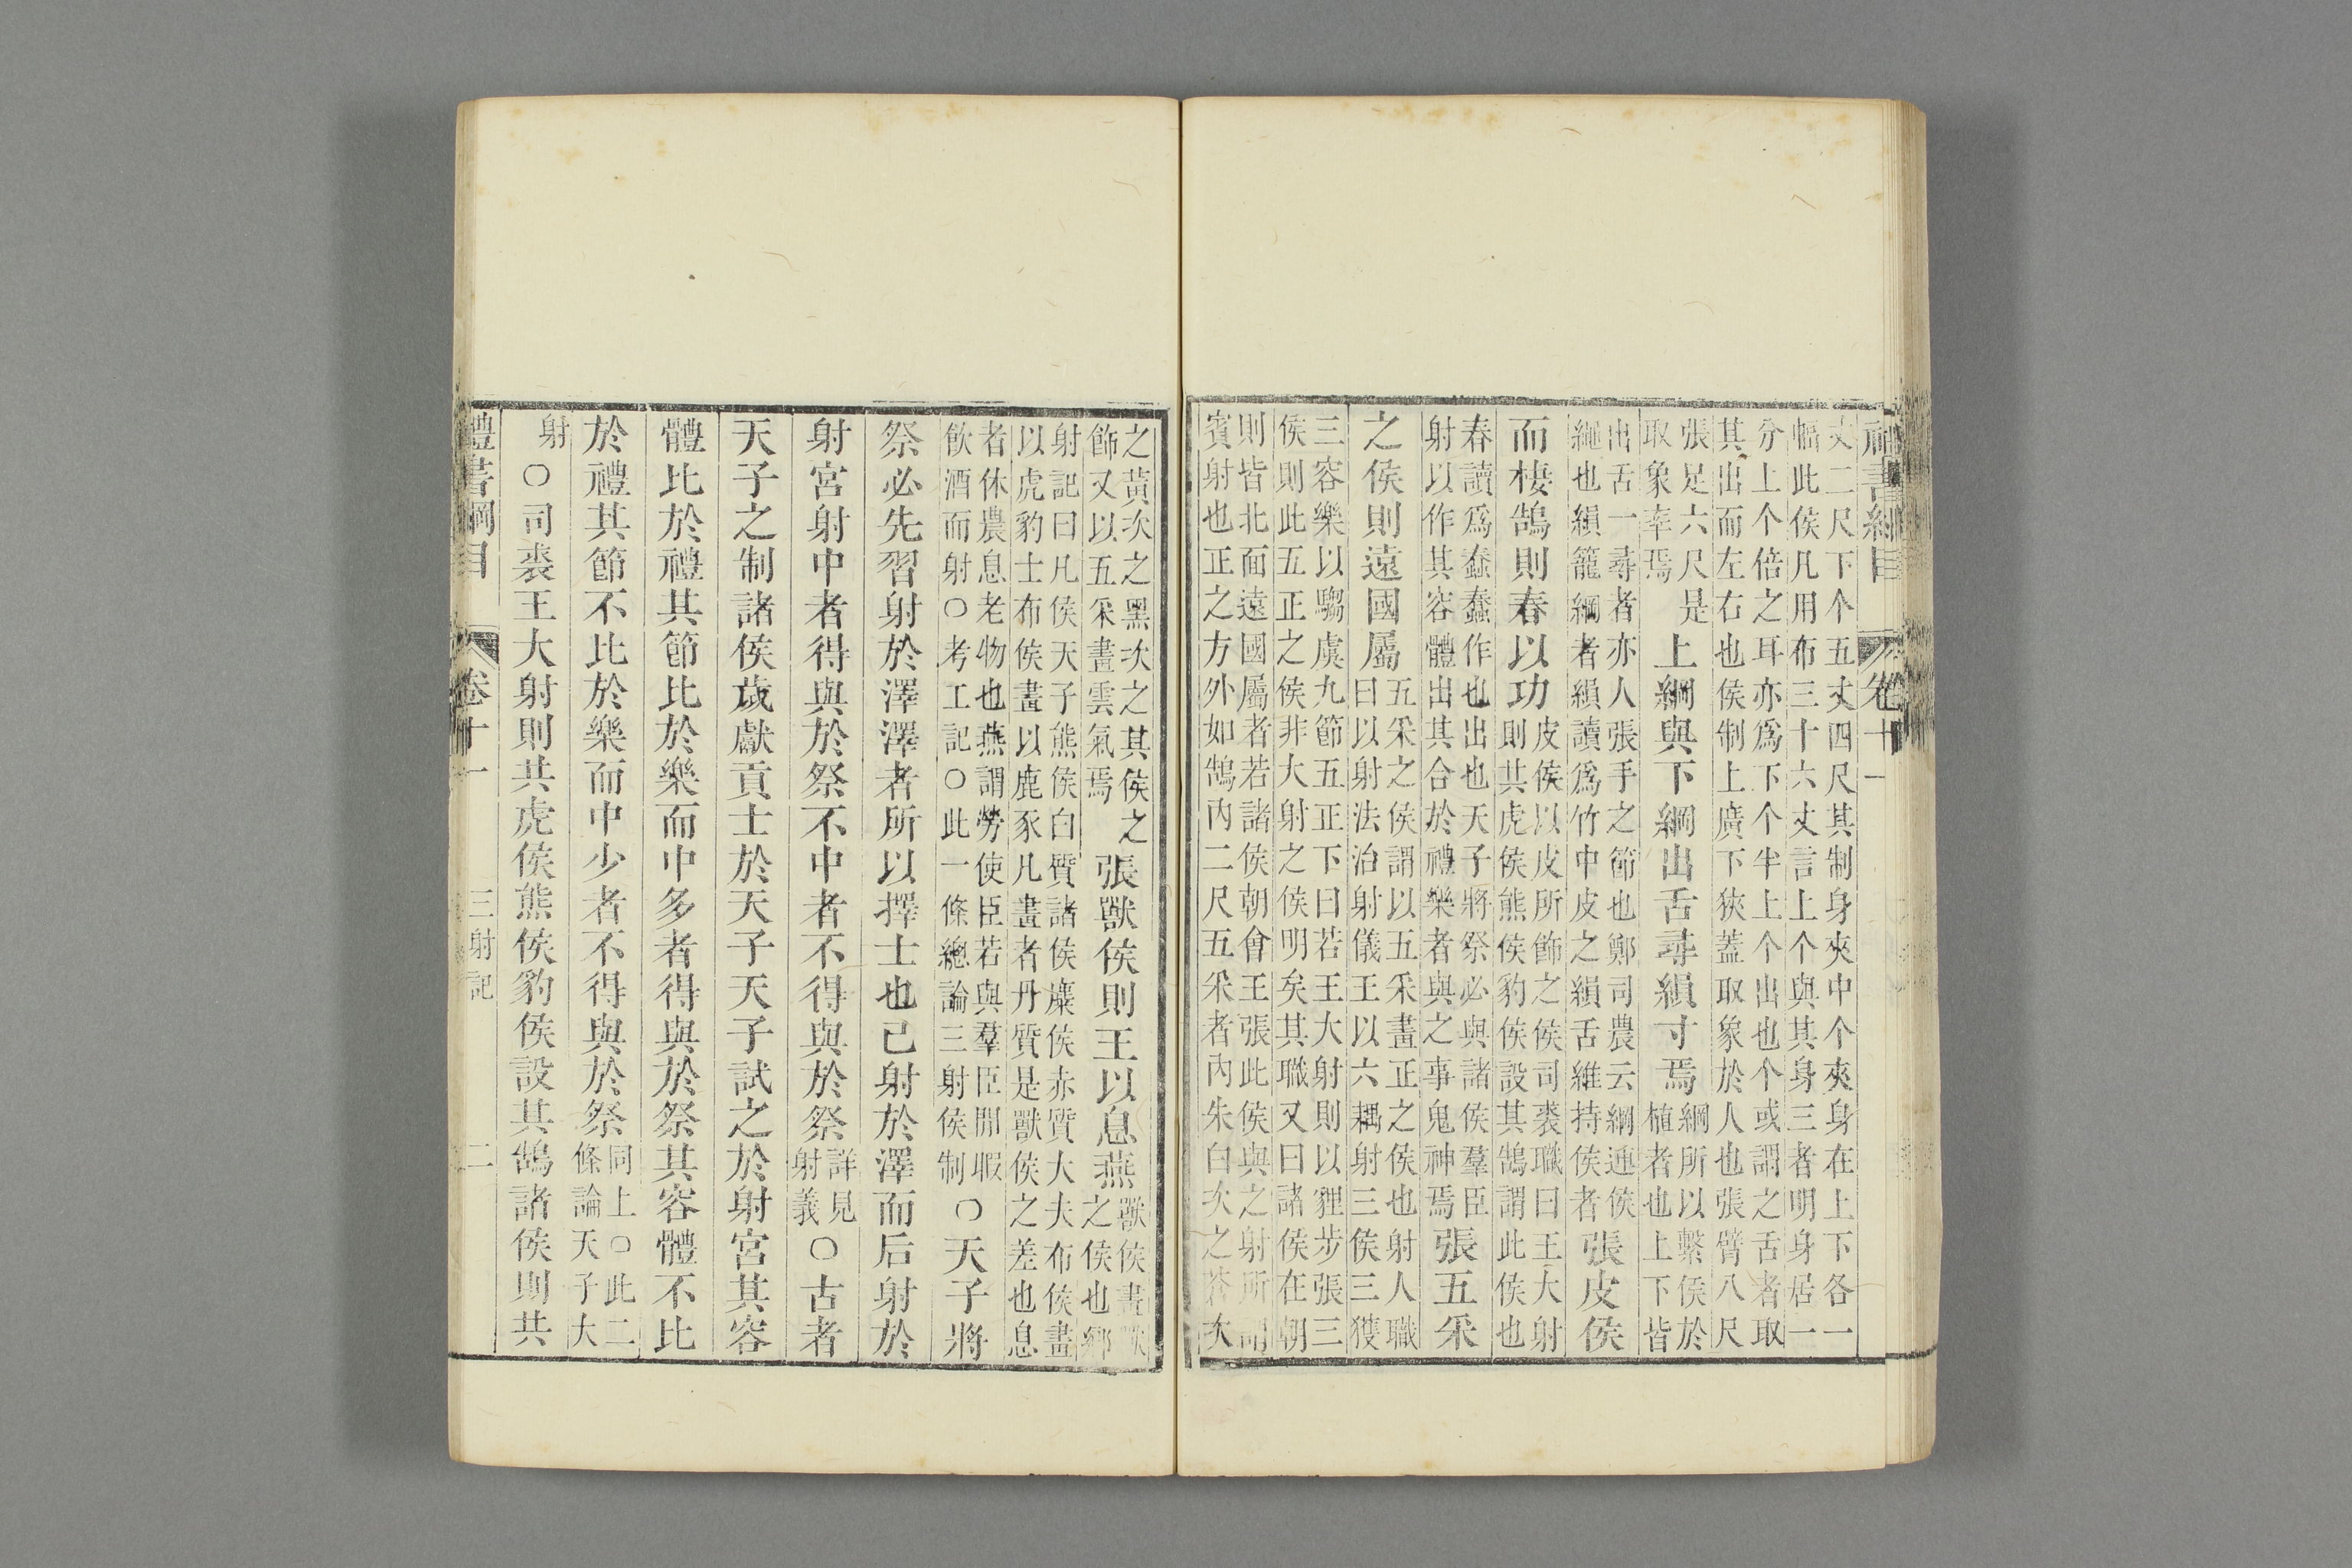 禮書綱目 卷十一
丈二尺下个五丈四尺其制身夾中个夾身在上下各一
幅此侯凡用布三十六丈言上个與其身三者明身居一
分上个倍之耳亦爲下个半上个出也个或謂之舌者取
其出而左右也侯制上廣下狹蓋取象於人也張臂八尺
張足六尺是
取象率焉
上綱與下綱出舌尋縜寸焉
綱所以繫侯於
植者也上下皆
出舌一尋者亦人張手之節也鄭司農云綱連侯
繩也縜籠綱者縜讀爲竹中皮之縜舌維持侯者
張皮侯
而棲鵠則春以功
皮侯以皮所飾之侯司裘職曰王大射
則共虎侯熊侯豹侯設其鵠謂此侯也
春讀爲蠢蠢作也出也天子將祭必與諸侯羣臣
射以作其容體出其合於禮樂者與之事鬼神焉
張五采
之侯則遠國屬
五采之侯謂以五采畫正之侯也射人職
曰以射法治射儀王以六耦射三侯三獲
三容樂以騶虞九節五正下曰若王大射則以貍步張三
侯則此五正之侯非大射之侯明矣其職又曰諸侯在朝
則皆北面遠國屬者若諸侯朝會王張此侯與之射所謂
賓射也正之方外如鵠內二尺五采者內朱白次之蒼次
之黃次之黑次之其侯之
飾又以五采畫雲氣焉
張獸侯則王以息燕
獸侯畫獸
之侯也鄉
射記曰凡侯天子熊侯白質諸侯麋侯赤質大夫布侯畫
以虎豹士布侯畫以鹿豕凡畫者丹質是獸侯之差也息
者休農息老物也燕謂勞使臣若與羣臣閒暇
飲酒而射○考工記○此一條總論三射侯制
○天子將
祭必先習射於澤澤者所以擇士也已射於澤而后射於
射宮射中者得與於祭不中者不得與於祭
詳見
射義
○古者
天子之制諸侯歲獻貢士於天子天子試之於射宮其容
體比於禮其節比於樂而中多者得與於祭其容體不比
於禮其節不比於樂而中少者不得與於祭
同上○此二
條論天子大
射
○司裘王大射則共虎侯熊侯豹侯設其鵠諸侯則共
禮書綱目 卷十一 三射記 二